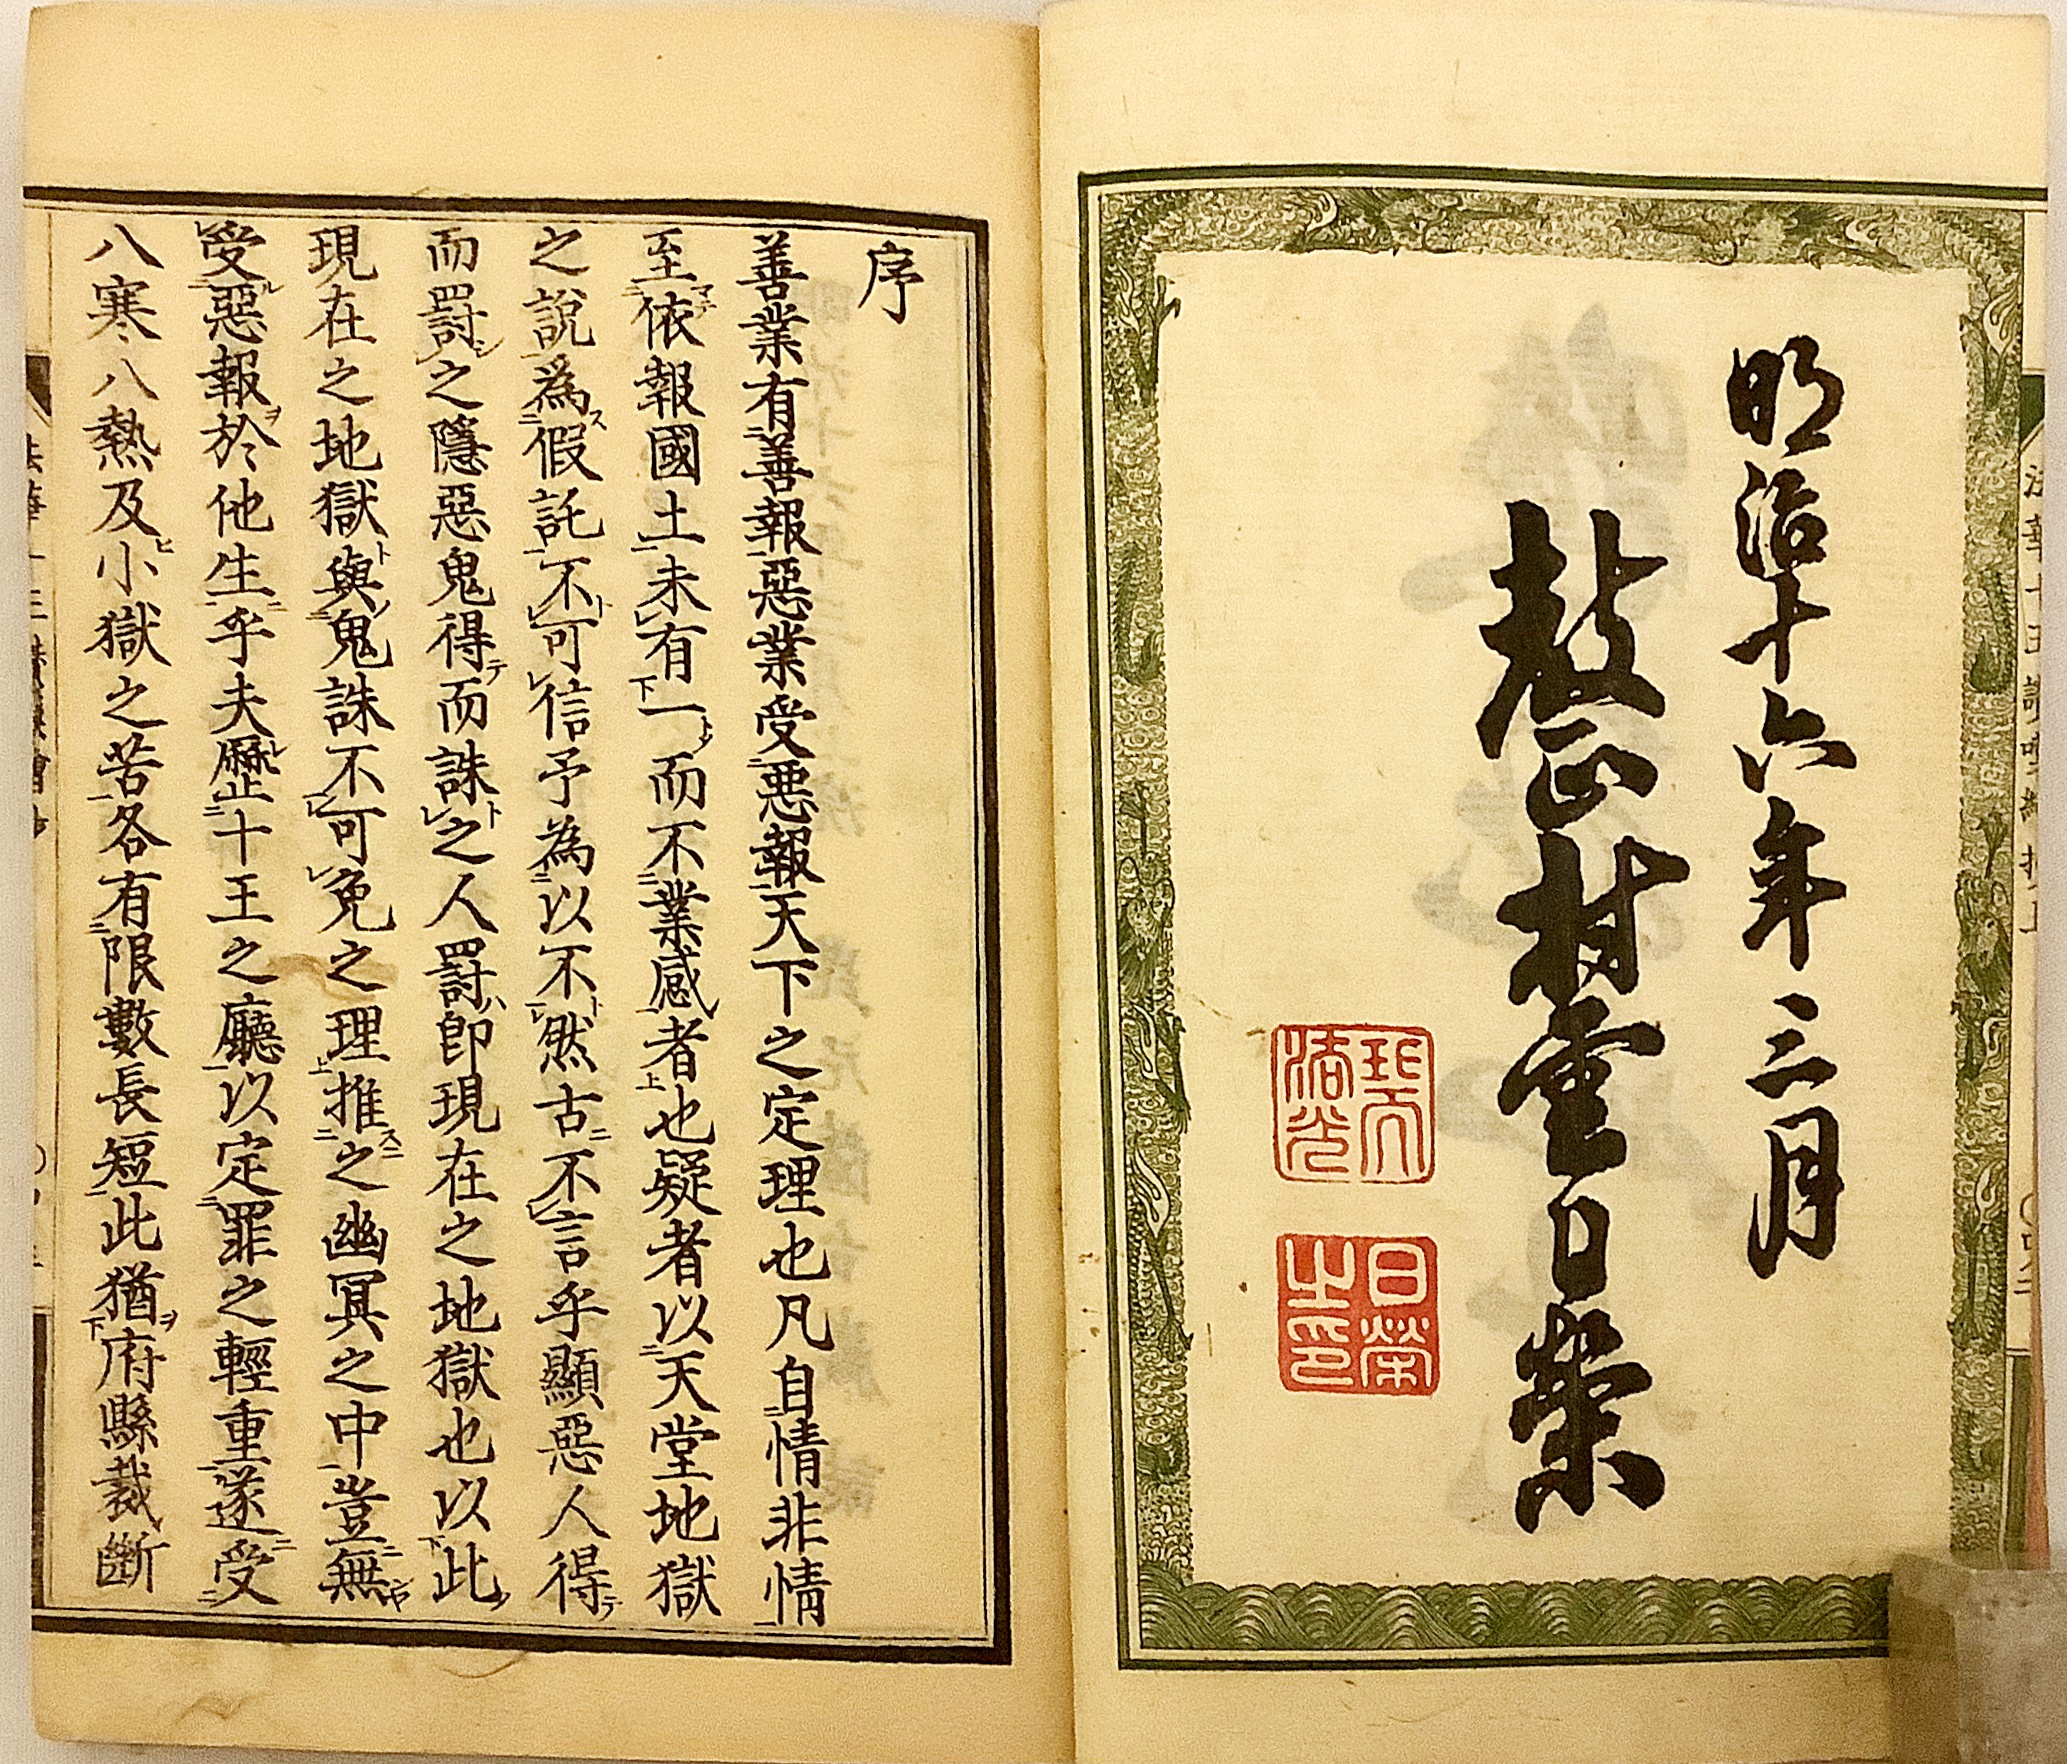 明治十六年三月
教正村雲日榮
日榮之印
序
善業有善報惡業受悪報天下之定理也凡自情非情
至依報國土未有一而不業感者也疑者以天堂地獄
之說為假託不可信予為以不然古不言乎顯惡人得
而罰之隱惡鬼得而誅之人罰即現在之地獄也以此
現在之地獄與鬼誅不可免之理推之幽冥之中豈無
受惡報於他生乎夫歷十王之廳以定罪之輕重遂受
八寒八熱及小獄之苦各有限數長短此猶府縣裁斷